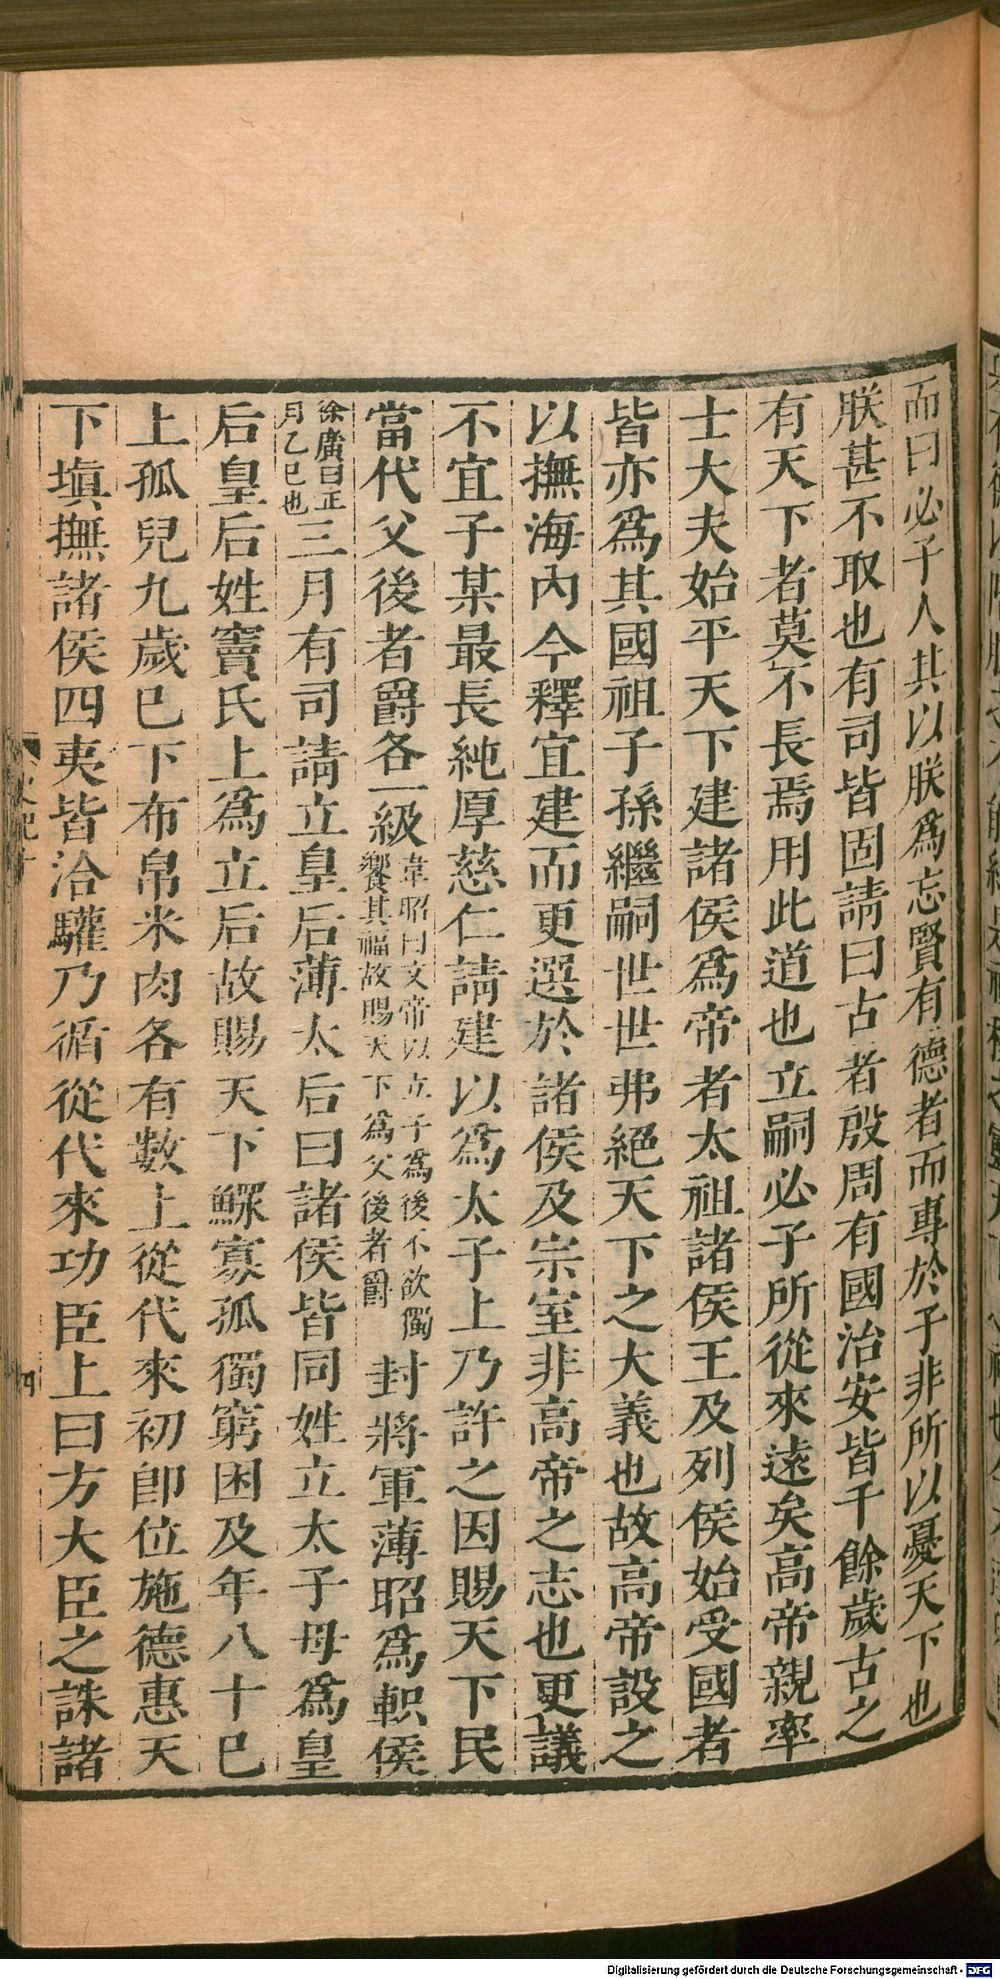 而曰必子人其以朕爲忘賢有德者而專於子非所以憂天下也
朕甚不取也有司皆固請曰古者殷周有國治安皆千餘歲古之
有天下者莫不長焉用此道也立嗣必子所從來遠矣高帝親率
士大夫始平天下建諸侯爲帝者太祖諸侯王及列侯始受國者
皆亦爲其國祖子孫繼嗣世世弗絕天下之大義也故高帝設之
以撫海內今釋宜建而更選於諸侯及宗室非高帝之志也更議
不宜子某最長純厚慈仁請建以爲太子上乃許之因賜天下民
當代父後者爵各一級韋昭曰文帝以立子爲後不欲獨饗其福故賜天下爲父後者爵封將軍薄昭爲軹侯
徐廣曰正月乙巳也三月有司請立皇后薄太后曰諸侯皆同姓立太子母爲皇
后皇后姓竇氏上爲立后故賜天下鰥寡孤獨窮困及年八十已
上孤兒九歲已下布帛米肉各有數上從代來初卽位施德惠天
下塡撫諸侯四夷皆洽驩乃循從代來功臣上曰方大臣之誅諸
四
Digitalisierung gefördert durch die Deutsche Forschungsgemeinschaft - DFG